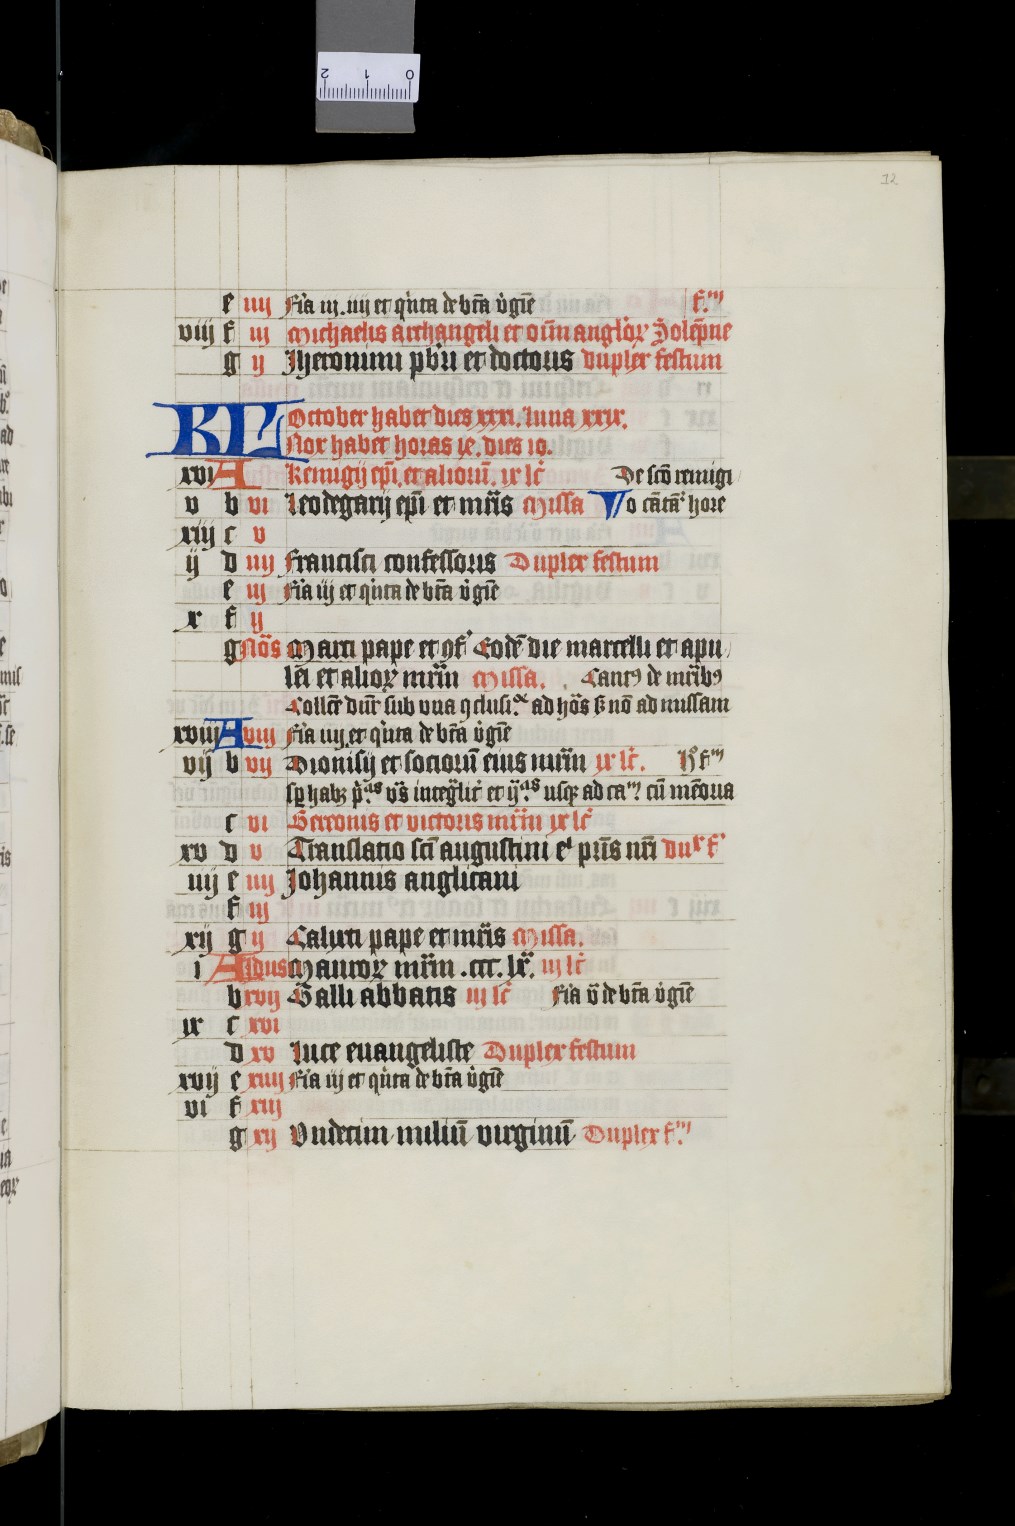 12
e iiij Fia iij. iiij et qinta de bta vgie f.m
viij f iij Michaelis archangeli et oim anglor Solepne
g ij Jheronimi pbri et doctoris duplex festum
KL October habet dies xxxi. luna xxix.
Nox habet horas 14. dies 10.
xvi A Remigij epi et aliorũ. ix lc De sco remigi
v b vi Leodegarij epi et mris Missa hore
xiij c v
ij d iiij Francisci confessoris Duplex festum
e iij Fia iij et qinta de bta vgie
x f ij
g Nos Marci pape et gf Eode die marcelli et apu
lei et alior mrim Missa. de mribꝯ
Collce dnr sub vna gclusi ad hos s no ad missam
xviij A viij Fia iiij et qinta de bta vgie
vij b vij Dionisij et sociorũ eius mrim ix lc.
usq ad cũ meoria
c vi Gereonis et victoris mrim ix lc
xv d v Translatio sci augustini e pris nri du f
iiij e iiij Johannis anglicani
f iij
xij g ij Calixti pape et mris Missa.
i A Idus Mauror mrim .ccc. lx. iij lc
b xvij Galli abbatis iij lc Fia v de bta vgie
ix c xvi
d xv Luce euangeliste Duplex festum
xvij e xiiij Fia iij et qinta de bta vgie
vi f xiij
g xij Vndecim miliũ virginũ Duplex f.m
2 1 0